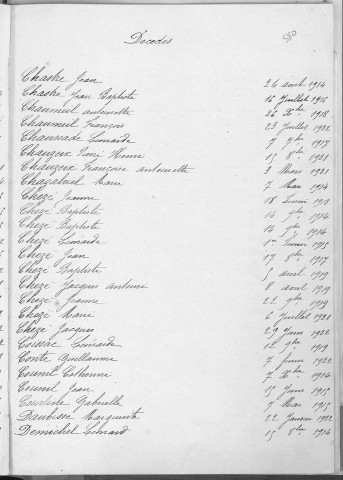 580
Décédés
Chastre Jean 24 aout 1914
Chastre Jean Baptiste 16 Juillet 1916
Chaumeil antoinette 26 Xbre 1918
Chaumeil François 23 Juillet 1922
Chaussade Léonarde 7 9bre 1917
Chauzeix Pierre Henri 15 8bre 1921
Chauzeix Françoise antoinette 3 Mars 1921
Chazalviel Marie 7 Mai 1914
Chèze Jeanne 18 février 1918
Chèze Baptiste 14 9bre 1914
Chèze Baptiste 14 9bre 1914
Chèze Léonarde 1er février 1915
Chèze Jean 17 8bre 1917
Chèze Baptiste 5 avril 1919
Chèze Jacques Antoine 8 aout 1919
Chèze Jeanne 22 9bre 1919
Chèze Marie 6 Juillet 1921
Chèze Jacques 29 Juin 1922
Coissac Léonarde 12 9bre 1919
Conte Guillaume 7 février 1922
Counil Catherine 7 Xbre 1914
Counil Jean 15 Juin 1915
Gabrielle 7 Mai 1915
Daubisse Marguerite 22 Janvier 1922
Demichel Léonard 15 8bre 1914